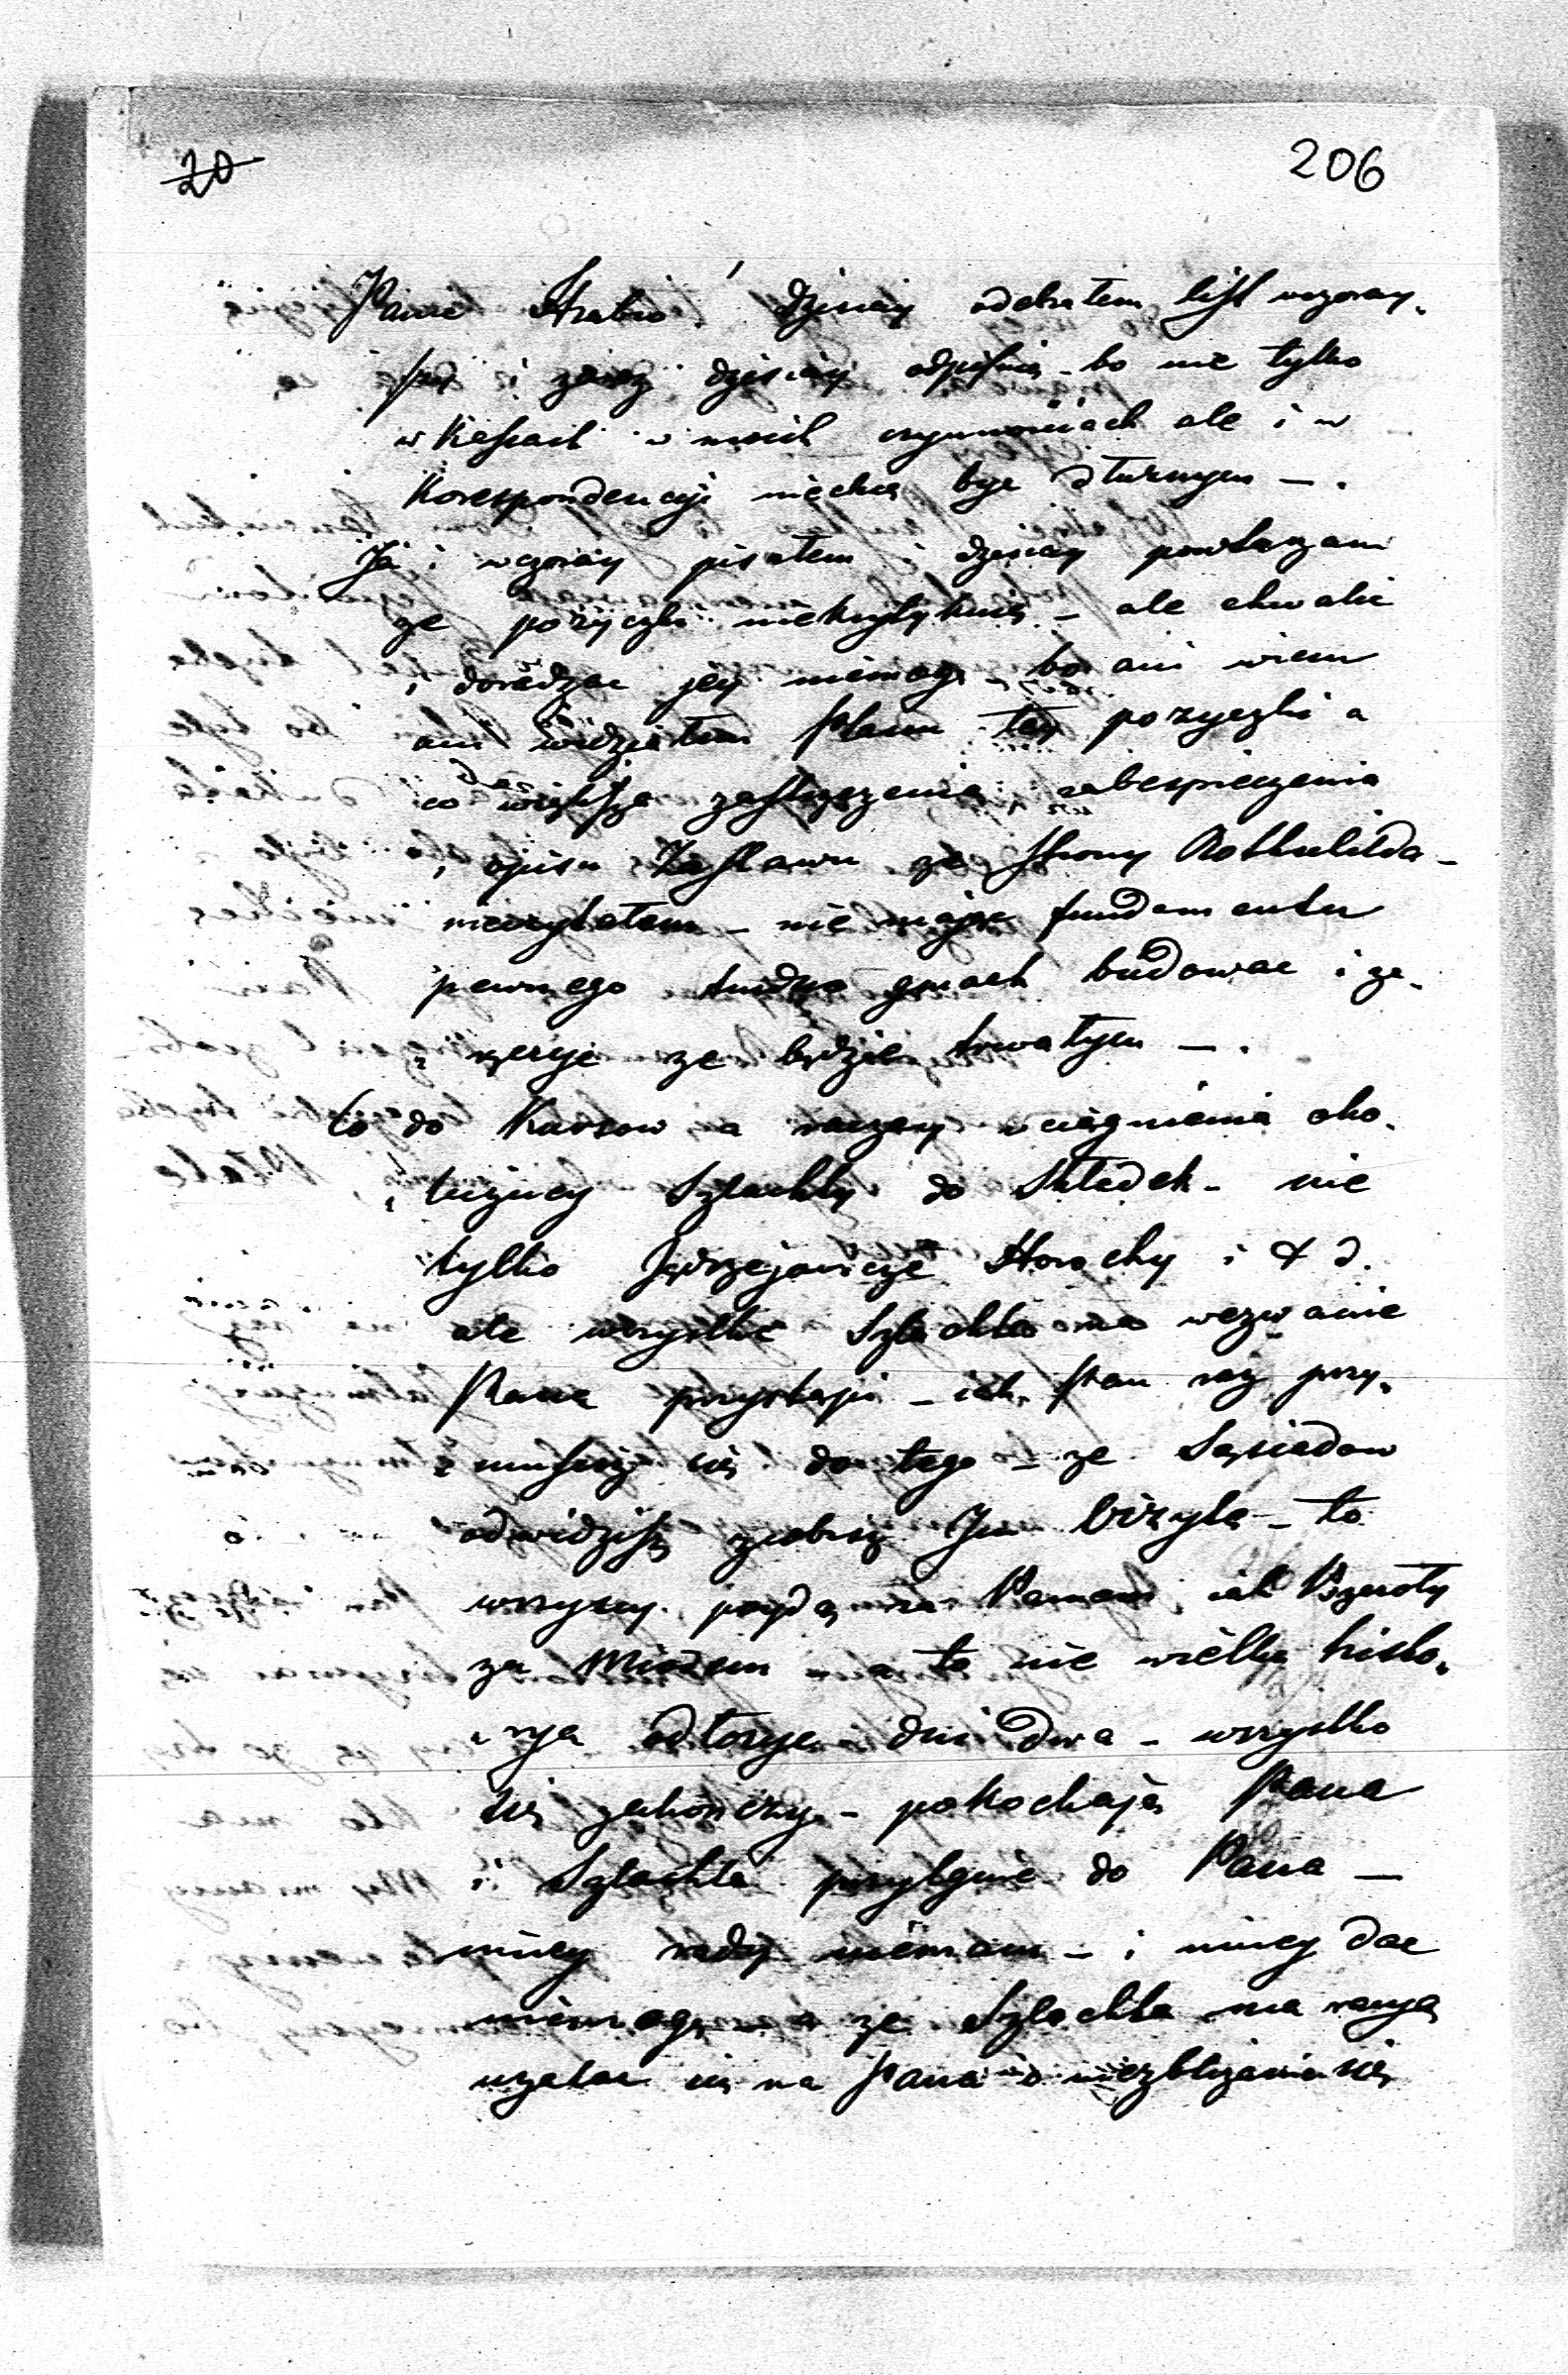 20
206
Panie Hrabio! dzisiay odebrałem list wczoray-
szy i zaraz dzisiay odpisuię - bo nie tylko
w Kassach w moich czynnościach ale i w
Korespondencyi niechcę byc dłuznym -.
Ja i wczoray pisałem i dzisiay powtarzam
ze pożyczki niekrytykuię - ale chwalic
i doradzac jey niemogę bo ani wiem
ani widziałem Planu tey pozyczki a
co większa zastrzezenia zabespieczenia
i opisu Zastawu ze strony Rothschilda -
nieczytałem - nie mając fundamentu
pewnego trudno gmach budowac i ze-
ze będzie trwałym -.
Co do Kursow a raczey wciągnienia oko-
liczney Szlachty do Składek - nie
tylko Jędrzejowicze Horochy i t d.
ale wszystka Szlachta na wezwanie
Pana przystąpi - iak Pan raz przy-
musisz się do tego - ze Sąsiadow
odwidzisz zrobisz Im Wizytę - to
wszyscy poydą za Panem iak Pszczoły
za Miodem - a to nie wielka histo-
rya odłozyc dni dwa - wszystko
się zakonczy - pokochają Pana
i Szlachta przylgnie do Pana -
inney rady niemam - i inney dac
niemogę - a ze Szlachta ma racyą
uzalac się na Pana o niezblizanie się